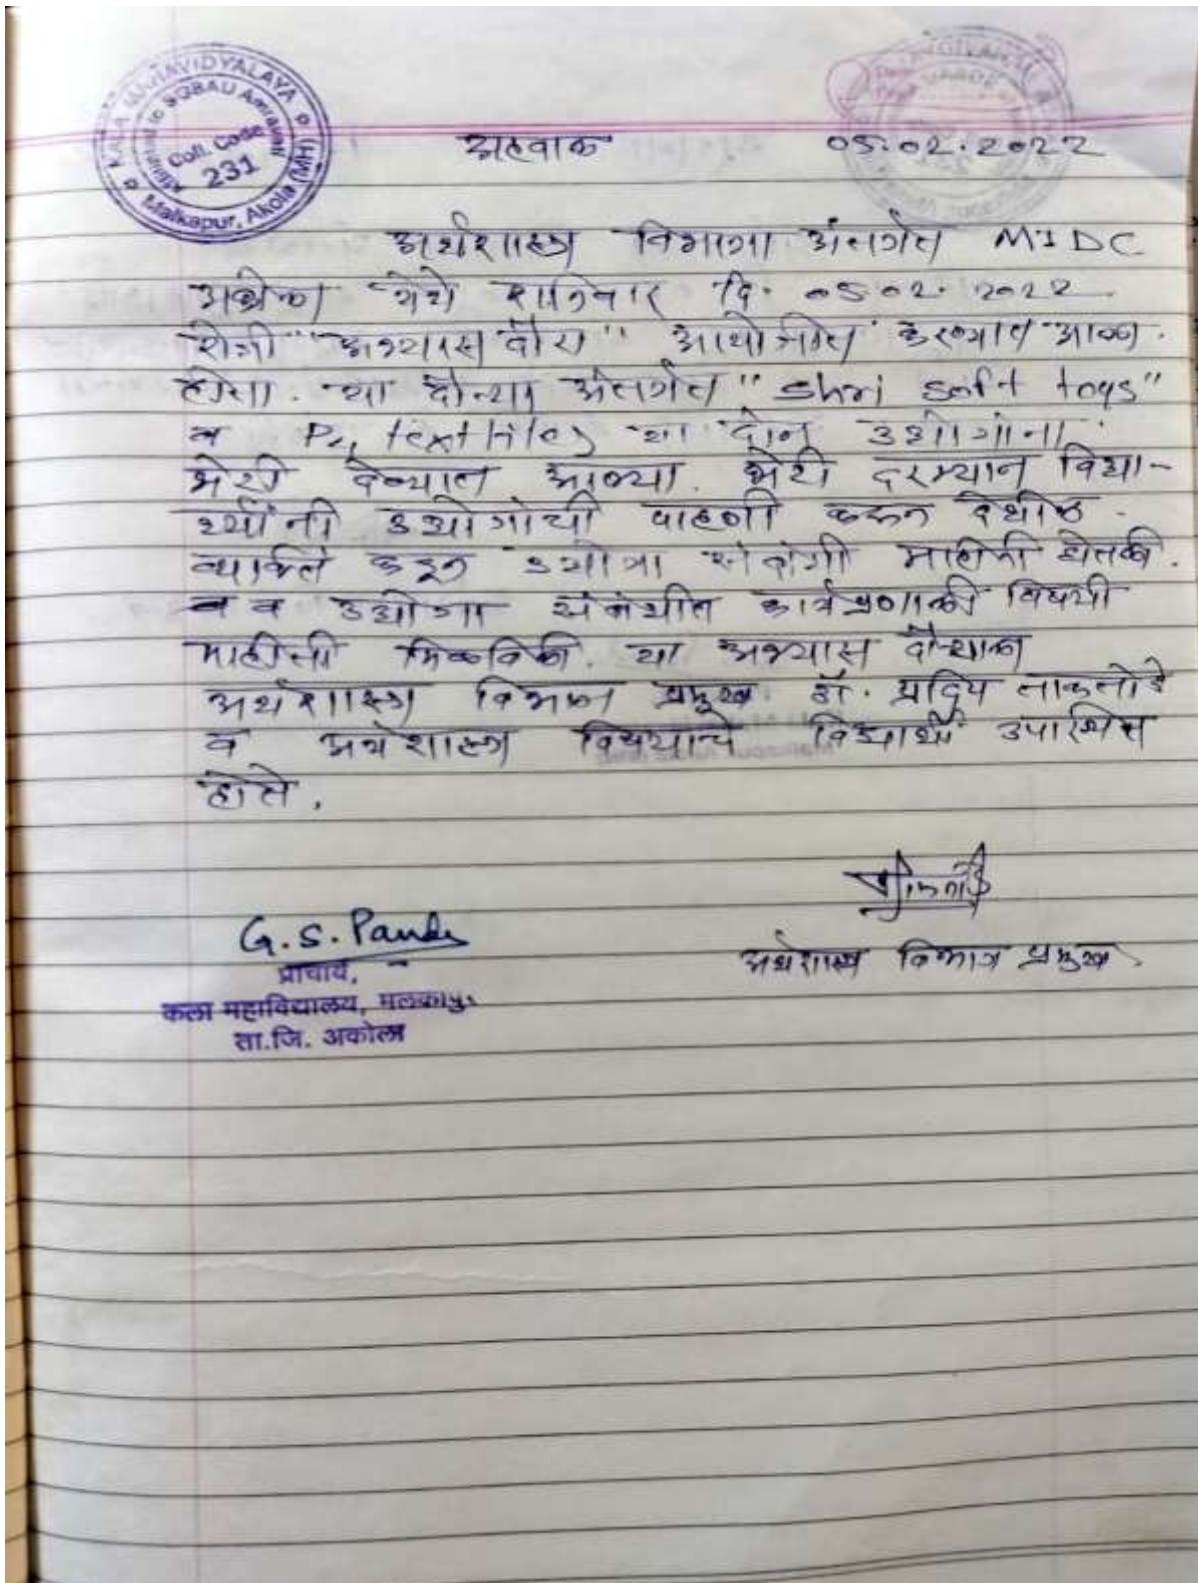 KALA MAHAVIDYALAYA
Affiliated to SGBAU Amravati
Coll. Code
231
Malkapur, Akola (MH)
अहवाल 05.02.2022
अर्थशास्त्र विभागा अंतर्गत MIDC
अकोला येथे शनिवार दि. 05.02.2022
रोजी "अभ्यास दौरा" आयोजीत करण्यात आला.
होता. या दौऱ्या अंतर्गत "Shri soft toys"
व texttiles या दोन उद्योगांना
भेटी देण्यात आल्या. भेटी दरम्यान विद्या-
र्थ्यांनी उद्योगांची पाहणी करून येथील
व्यक्तिं कडून उद्योगा संबंधी माहिती घेतली.
व उद्योगा संबंधीत कार्यप्रणाली विषयी
माहीती मिळविली. या अभ्यास दौऱ्याला
अर्थशास्त्र विभाग प्रमुख डॉ. प्रदिप ताकतोडे
व अर्थशास्त्र विषयाचे विद्यार्थी उपास्थित
होते.
G.S. Pande
प्राचार्य,
कला महाविद्यालय, मलकापुर
ता.जि. अकोला
अर्थशास्त्र विभाग प्रमुख